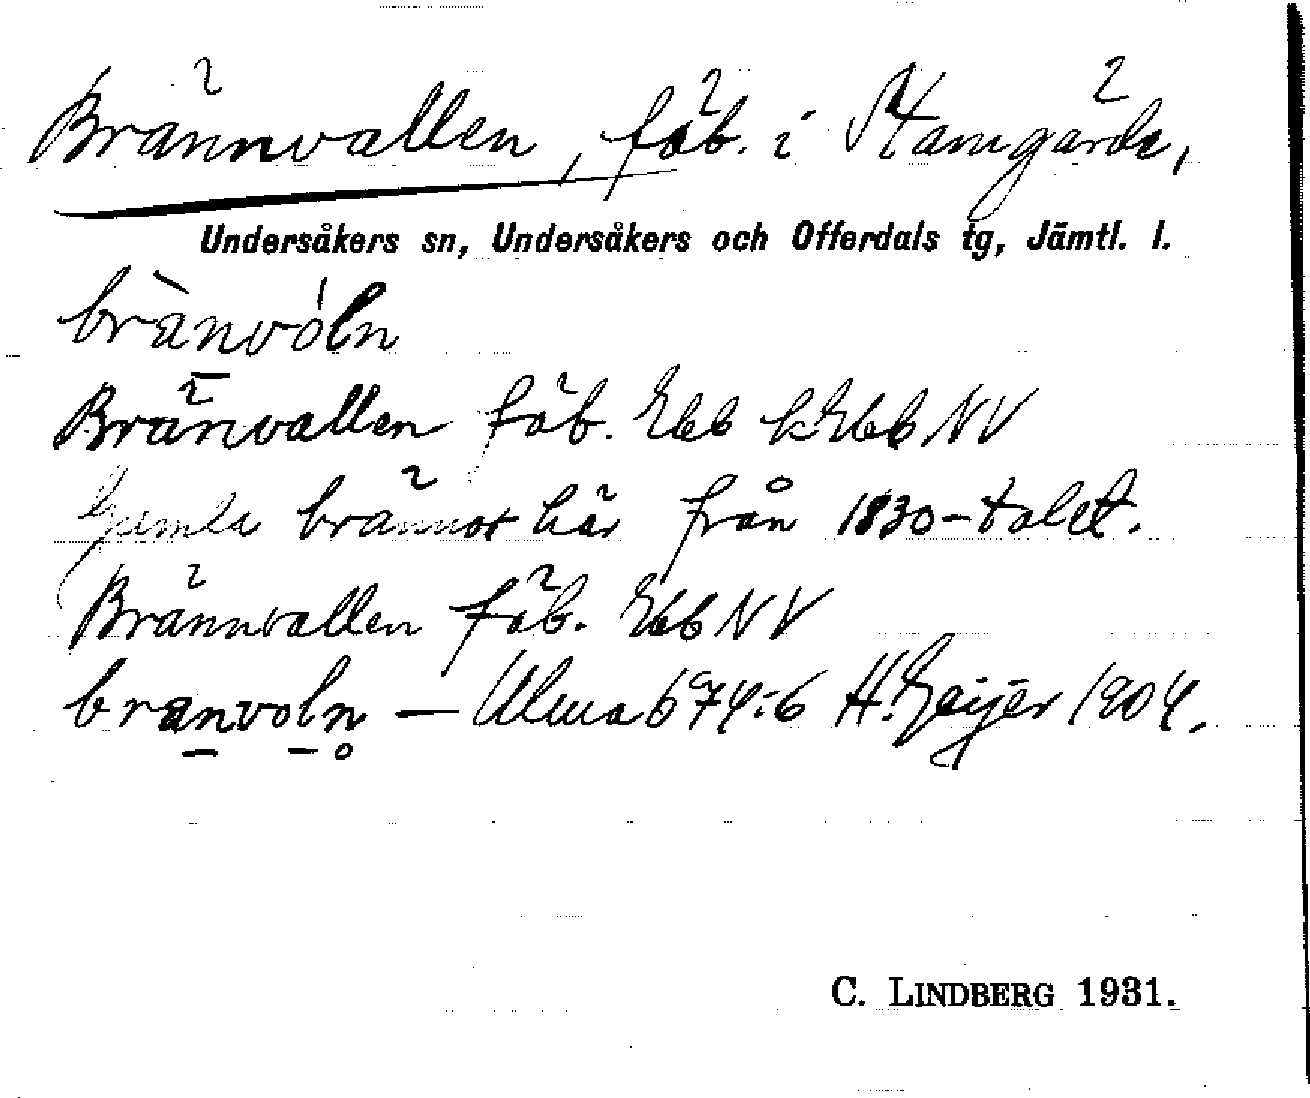 Brännvallen, fäb. i Stamgärde,
Undersåkers sn, Undersåkers och Offerdals tg, Jämtl. l.
brànvóln
Bränvallen fäb. Ebb kEbb NV
Gamla brännor här från 1830-talet.
Brännvallen fäb. Ebb NV
branvoln — Ulma 674:6 H. Geijer 1904.
C. LINDBERG 1931.